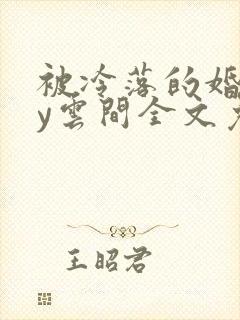 被冷落的婚
y雲間全文
王昭君